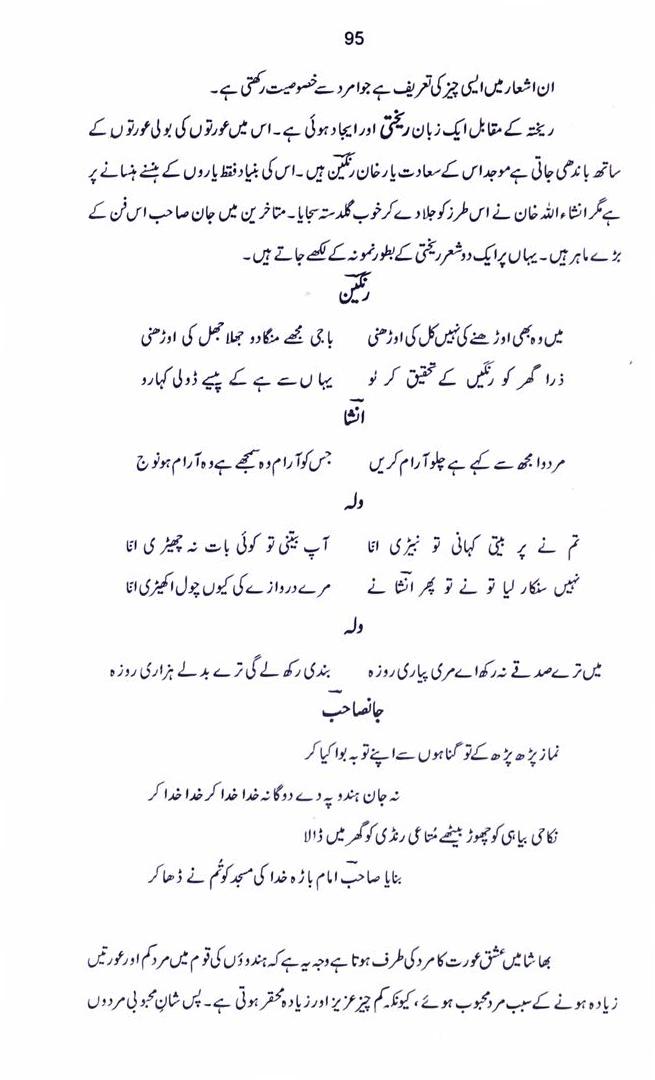 95
ان اشعار میں ایسی چیز کی تعریف ہے جو امرد سے خصوصیت رکھتی ہے۔
ریختہ کے مقابل ایک زبان ریختی اور ایجاد ہوئی ہے۔ اس میں عورتوں کی بولی عورتوں کے
ساتھ باندھی جاتی ہے موجد اس کے سعادت یار خان رنگینؔ ہیں۔ اس کی بنیاد فقط یاروں کے ہنسنے ہنسانے پر
ہے مگر انشاء اللہ خان نے اس طرز کو جلا دے کر خوب گلدستہ سجایا۔ متاخرین میں جان صاحب اس فن کے
بڑے ماہر ہیں۔ یہاں پر ایک دو شعر ریختی کے بطور نمونہ کے لکھے جاتے ہیں۔
رنگینؔ
میں وہ بھی اوڑھنے کی نہیں کل کی اوڑھنی باجی مجھے منگادو جھلا جھل کی اوڑھنی
ذرا گھر کو رنگیںؔ کے تحقیق کر لو یہاں سے ہے کے پیسے ڈولی کہارو
انشاؔ
مردوا مجھ سے کہے ہے چلو آرام کریں جس کو آرام وہ سمجھے ہے وہ آرام ہو نوج
ولہ
تم نے پر بیتی کہانی تو نبیڑی انّا آپ بیتی تو کوئی بات نہ چھیڑی انّا
نہیں سنکار لیا تو نے تو پھر انشاؔ نے مرے دروازے کی کیوں چول اکھیڑی انّا
ولہ
میں ترے صدقے نہ رکھ اے مری پیاری روزہ بندی رکھ لے گی ترے بدلے ہزاری روزہ
جانصاحبؔ
نماز پڑھ پڑھ کے تو گناہوں سے اپنے توبہ بوا کیا کر
نہ جان ہندو پہ دے دوگانہ خدا خدا کر خدا خدا کر
نکاحی بیاہی کو چھوڑ بیٹھے مُتاعی رنڈی کو گھر میں ڈالا
بنایا صاحبؔ امام باڑہ خدا کی مسجد کو تُم نے ڈھا کر
بھاشا میں عشق عورت کا مرد کی طرف ہوتا ہے وجہ یہ ہے کہ ہندوؤں کی قوم میں مرد کم اور عورتیں
زیادہ ہونے کے سبب مرد محبوب ہوئے، کیونکہ کم چیز عزیز اور زیادہ محقر ہوتی ہے۔ پس شانِ محبوبی مردوں